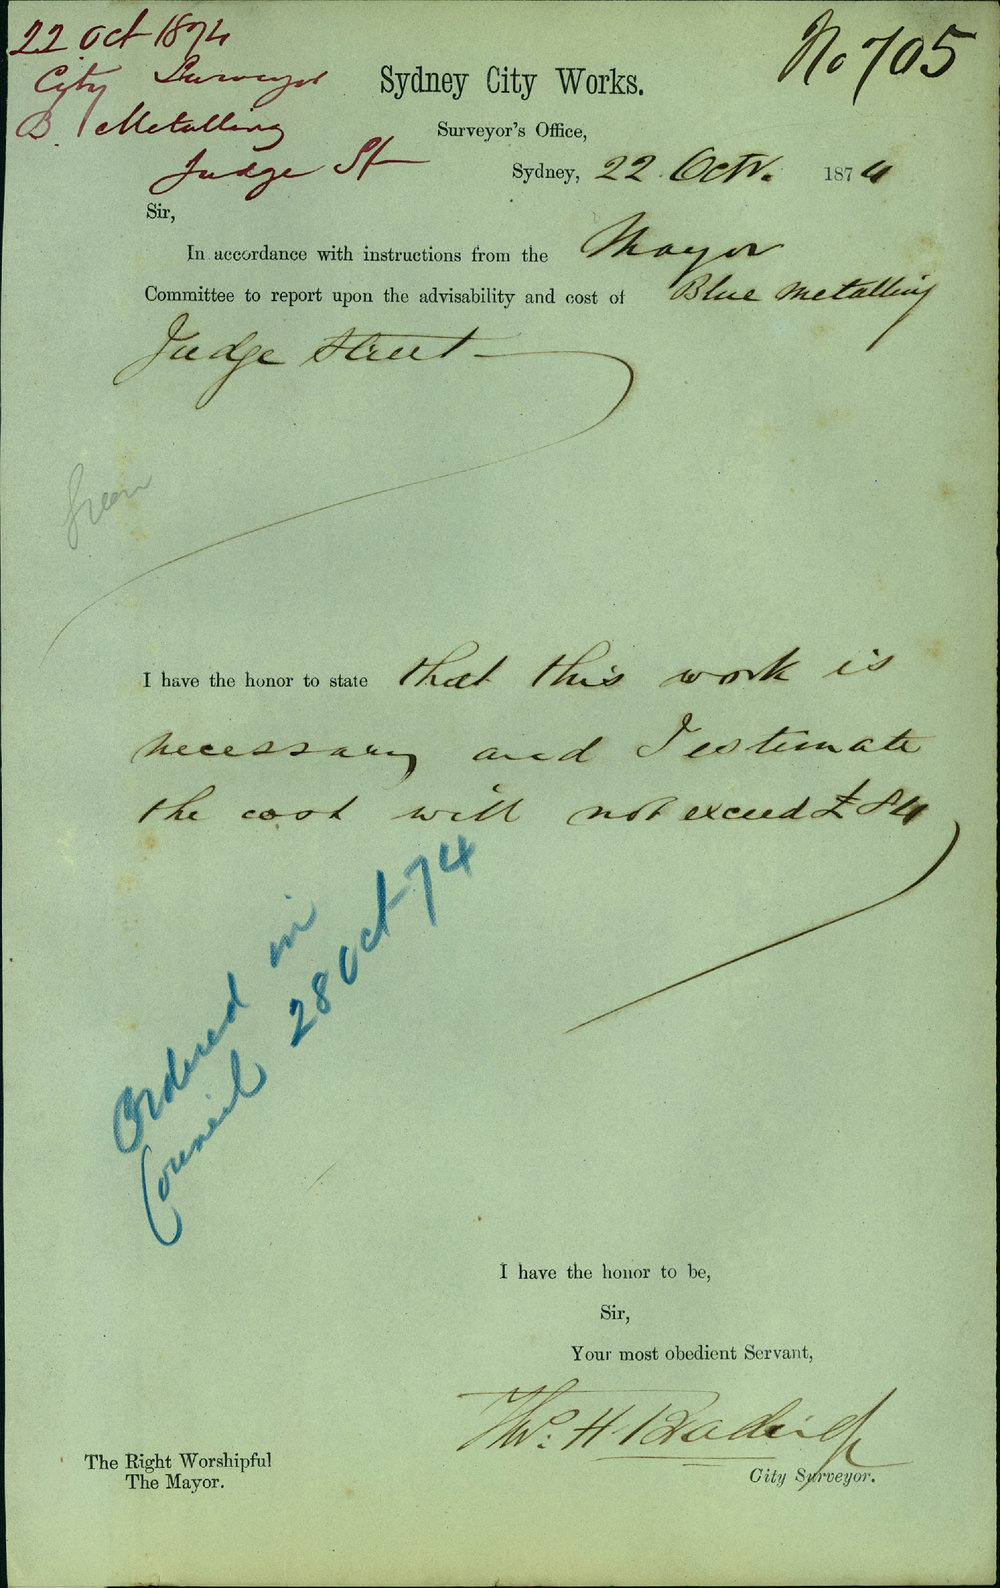 22 Oct 1874
City Surveyor
B. Metalling
Judge St
No 705
Sydney City Works.
Surveyor's Office,
Sydney, 22 Octr. 1874
Sir,
In accordance with instructions from the Mayor
Committee to report upon the advisability and cost of Blue metalling
Judge Street
I have the honor to state that this work is
necessary and I estimate
the cost will not exceed £84
Ordered in
Council 28 Oct 74
I have the honor to be,
Sir,
Your most obedient Servant,
Thos: H
City Surveyor.
The Right Worshipful
The Mayor.